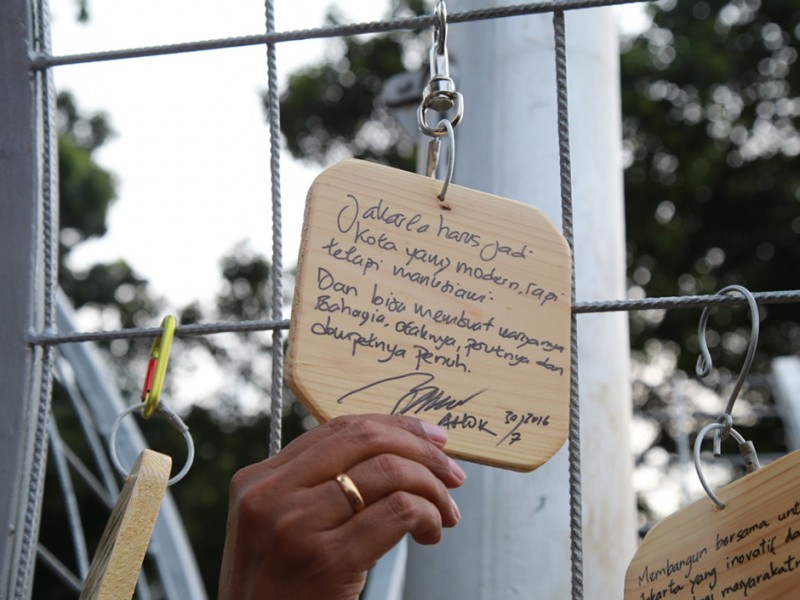 Jakarta harus jadi
kota yang modern, rapi
tetapi manusiawi.
Dan bisa membuat warganya
Bahagia, otaknya, perutnya dan
dompetnya penuh.
AHOK 30/2016
/7
Membangun bersama unt
Jakarta yang inovatif da
masyarakatn